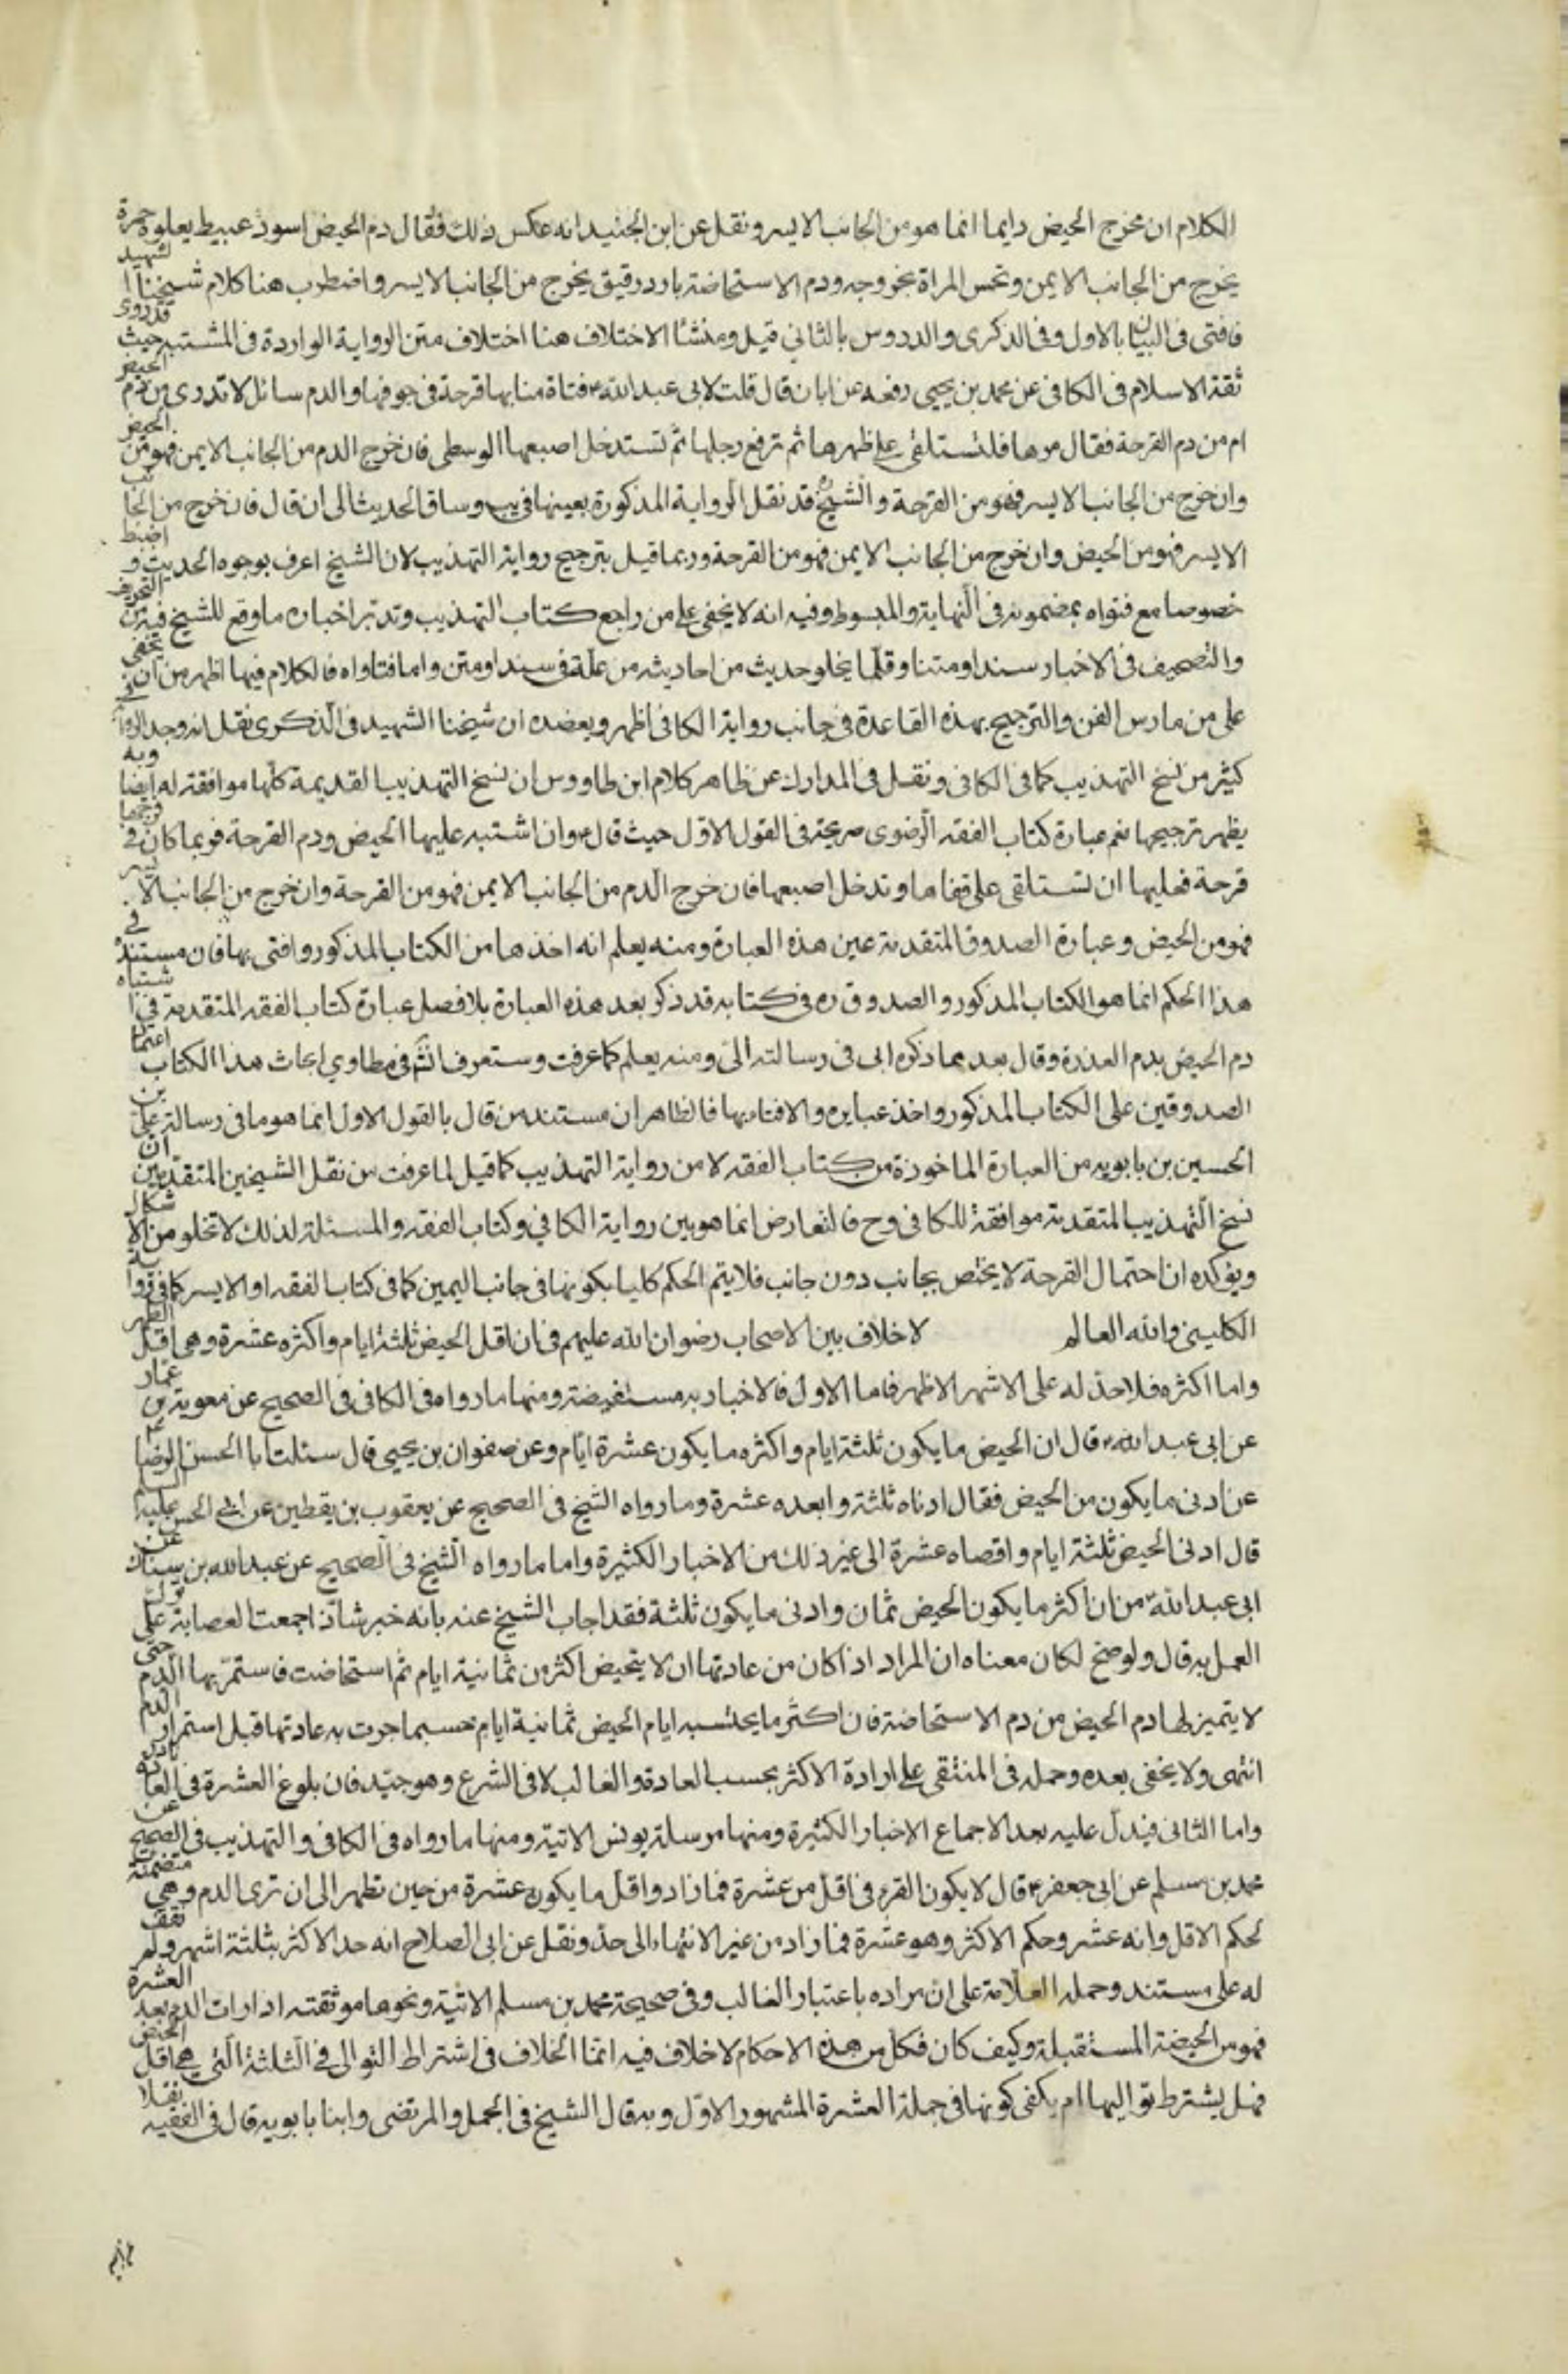 الكلام ان مخرج الحيض دايما انما هو من الجانب الايسر ونقل عن ابن الجنيد انه عكس ذلك فقال دم الحيض اسود عبيط يعلوه حمرة
يخرج من الجانب الايمن وتحس المراة بخروجه ودم الاستحاضة بارد رقيق يخرج من الجانب الايسر واضطرب هنا كلام شيخنا الشهيد
فافتى في البيان بالاول وفي الذكرى والدروس بالثاني قيل ومنشا الاختلاف هنا اختلاف متن الرواية الواردة في المشتبه حيث قد روى
ثقة الاسلام في الكافي عن محمد بن يحيى رفعه عن ابان قال قلت لابي عبد الله ع فتاة منا بها قرحة في جوفها والدم سائل لا تدري من دم الحيض
ام من دم القرحة فقال مرها فلتستلقي على ظهرها ثم ترفع رجليها ثم تستدخل اصبعها الوسطى فان خرج الدم من الجانب الايمن فهو من الحيض
وان خرج من الجانب الايسر فهو من القرحة والشيخ ره قد نقل الرواية المذكورة بعينها في يب وساق الحديث الى ان قال فان خرج من الجانب
الايسر فهو من الحيض وان خرج من الجانب الايمن فهو من القرحة وربما قيل بترجيح رواية التهذيب لان الشيخ اعرف بوجوه الحديث واضبط
خصوصا مع فتواه بمضمونه في النهاية والمبسوط وفيه انه لا يخفى على من راجع كتاب التهذيب وتدبر اخباره ما وقع للشيخ فيه من التحريف
والتصحيف في الاخبار سندا ومتنا وقلما يخلو حديث من احاديثه من علة في سند او متن واما فتاواه فالكلام فيها اظهر من ان يخفى
على من مارس الفن والترجيح بهذه القاعدة في جانب رواية الكافي اظهر ويعضده ان شيخنا الشهيد في الذكرى نقل انه وجد الرواية في
كثير من نسخ التهذيب كما في الكافي ونقل في المدارك عن ظاهر كلام ابن طاووس ان نسخ التهذيب القديمة كلها موافقة له ايضا وبه
يظهر ترجيحها نعم عبارة كتاب الفقه الرضوي صريحة في القول الاول حيث قال ع وان اشتبه عليها الحيض ودم القرحة فربما كان في فرجها
قرحة فعليها ان تستلقي على قفاها وتدخل اصبعها فان خرج الدم من الجانب الايمن فهو من القرحة وان خرج من الجانب الايسر
فهو من الحيض وعبارة الصدوق المتقدمة عين هذه العبارة ومنه يعلم انه اخذها من الكتاب المذكور وافتى بها فان مستنده في
هذا الحكم انما هو الكتاب المذكور والصدوق ره في كتابه قد ذكر بعد هذه العبارة بلا فصل عبارة كتاب الفقه المتقدمة في اشتباه
دم الحيض بدم العذرة وقال بعدهما ذكره ابي في رسالته الي ومنه يعلم كما عرفت وستعرف انش في مطاوي ابحاث هذا الكتاب اعتماد
الصدوقين على الكتاب المذكور واخذ عبايره والافتاء بها فالظاهر ان مستند من قال بالقول الاول انما هو ما في رسالة علي بن
الحسين بن بابويه من العبارة الماخوذة من كتاب الفقه لا من رواية التهذيب كما قيل لما عرفت من نقل الشيخين المتقدمين ان
نسخ التهذيب المتقدمة موافقة للكافي وح فالتعارض انما هو بين رواية الكافي وكتاب الفقه والمسئلة لذلك لا تخلو من الاشكال
ويؤكده ان احتمال القرحة لا يختص بجانب دون جانب فلا يتم الحكم كليا بكونها في جانب اليمين كما في كتاب الفقه او الايسر كما في رواية
الكليني والله العالم لا خلاف بين الاصحاب رضوان الله عليهم في ان اقل الحيض ثلثة ايام واكثره عشرة وهي اقل الطهر
واما اكثره فلا حد له على الاشهر الاظهر فاما الاول فالاخبار به مستفيضة ومنها ما رواه في الكافي في الصحيح عن معوية بن عمار
عن ابي عبد الله ع قال ان الحيض ما يكون ثلثة ايام واكثره ما يكون عشرة ايام وعن صفوان بن يحيى قال سئلت ابا الحسن الرضا ع
عن ادنى ما يكون من الحيض فقال ادناه ثلثة وابعده عشرة وما رواه الشيخ في الصحيح عن يعقوب بن يقطين عن ابي الحسن عليه السلام
قال ادنى الحيض ثلثة ايام واقصاه عشرة الى غير ذلك من الاخبار الكثيرة واما ما رواه الشيخ في الصحيح عن عبد الله بن سنان عن
ابي عبد الله ع من ان اكثر ما يكون الحيض ثمان وادنى ما يكون ثلثة فقد اجاب الشيخ عنه بانه خبر شاذ اجمعت العصابة على ترك
العمل به قال ولو صح لكان معناه ان المراد اذا كان من عادتها ان لا يتحيض اكثر من ثمانية ايام ثم استحاضت فاستمر بها الدم حتى
لا يتميز لها دم الحيض من دم الاستحاضة فان اكثر ما يحتسب به ايام الحيض ثمانية ايام حسبما جرت به عادتها قبل استمرار الدم
انتهى ولا يخفى بعده وحمله في المنتقى على ارادة الاكثر بحسب العادة والغالب لا في الشرع وهو جيد فان بلوغ العشرة في العادة نادر
واما الثاني فيدل عليه بعد الاجماع الاخبار الكثيرة ومنها مرسلة يونس الاتية ومنها ما رواه في الكافي والتهذيب في الصحيح عن
محمد بن مسلم عن ابي جعفر ع قال لا يكون القرء في اقل من عشرة فما زاد واقل ما يكون عشرة من حين تطهر الى ان ترى الدم وهي متضمنة
لحكم الاقل وانه عشر وحكم الاكثر وهو عشرة فما زاد من غير الانتهاء الى حد ونقل عن ابي الصلاح انه حد الاكثر بثلثة اشهر ولم نقف
له على مستند وحمله العلامة على ان مراده باعتبار الغالب وفي صحيحة محمد بن مسلم الاتية ونحوها موثقته اذا رات الدم بعد العشرة
فهو من الحيضة المستقبلة وكيف كان فكل من هذه الاحكام لا خلاف فيه انما الخلاف في اشتراط التوالي في الثلثة التي هي اقل الحيض
فهل يشترط تواليها ام يكفي كونها في جملة العشرة المشهور الاول وبه قال الشيخ في الجمل والمرتضى وابنا بابويه قال في الفقيه نقلا